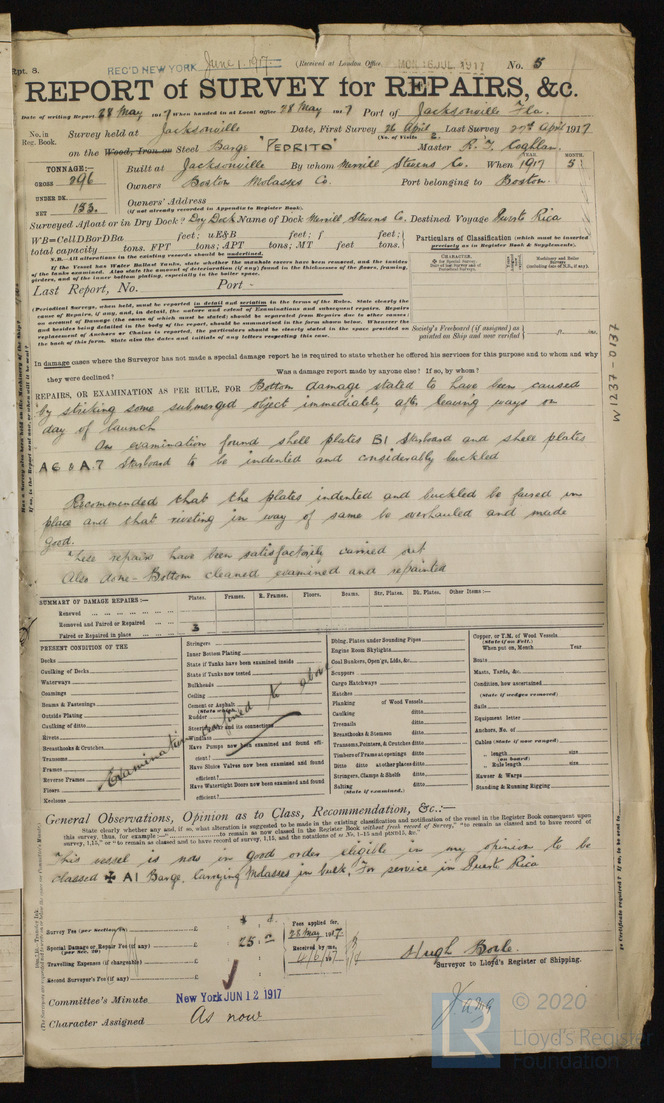 Rpt. 8.
REC'D NEW YORK June 1. 1917
(Received at London Office MON 16 JUL 1917
No. 5
REPORT of SURVEY for REPAIRS, &c.
Date of writing Report 28 May 1917 When handed in at Local Office 28 May 1917 Port of Jacksonville Fla.
No. in Reg. Book. Survey held at Jacksonville Date, First Survey 26 April Last Survey 27th April 1917
(No. of Visits 2.
on the Wood, Iron or Steel Barge "PEDRITO" Master R. J. Coghlan.
TONNAGE:— Built at Jacksonville By whom Merrill Stevens Co. When 1917 5
YEAR. MONTH.
GROSS 296 Owners Boston Molasses Co. Port belonging to Boston.
UNDER DK.
NET 133. Owners' Address
(if not already recorded in Appendix to Register Book).
Surveyed Afloat or in Dry Dock? Dry Dock Name of Dock Merrill Stevens Co. Destined Voyage Puerto Rica
WB=CellDBorDBa feet; uE&B feet; f feet;
total capacity tons. FPT tons; APT tons; MT feet tons.
Particulars of Classification (which must be inserted precisely as in Register Book & Supplements).
N.B.—All alterations in the existing records should be underlined.
Last Report, No. Port
Society's Freeboard (if assigned) as painted on Ship and now verified ft. ins.
In damage cases where the Surveyor has not made a special damage report he is required to state whether he offered his services for this purpose and to whom and why
they were declined? Was a damage report made by anyone else? If so, by whom?
REPAIRS, OR EXAMINATION AS PER RULE, FOR Bottom damage stated to have been caused
by striking some submerged object immediately after leaving ways on
day of launch
On examination found shell plates B1 Starboard and shell plates
A6 & A.7 Starboard to be indented and considerably buckled
Recommended that the plates indented and buckled be faired in
place and that riveting in way of same be overhauled and made
good.
These repairs have been satisfactorily carried out
Also done - Bottom cleaned examined and repainted
W1237-0130
SUMMARY OF DAMAGE REPAIRS:— Plates. Frames. R. Frames. Floors. Beams. Str. Plates. Dk. Plates. Other Items:—
Renewed
Removed and Faired or Repaired
Faired or Repaired in place 3
PRESENT CONDITION OF THE
Decks
Caulking of Decks
Waterways
Coamings
Beams & Fastenings
Outside Plating
Caulking of ditto
Rivets
Breasthooks & Crutches
Transoms
Frames
Reverse Frames
Floors
Keelsons
Stringers
Inner Bottom Plating
State if Tanks have been examined inside
State if Tanks now tested
Bulkheads
Ceiling
Cement or Asphalt
(State which)
Rudder
Steering gear and its connections
Windlass
Have Pumps now been examined and found efficient?
Have Sluice Valves now been examined and found efficient?
Have Watertight Doors now been examined and found efficient?
Examination confined to above
Dblng. Plates under Sounding Pipes
Engine Room Skylights
Coal Bunkers, Open'gs, Lids, &c.
Scuppers
Cargo Hatchways
Hatches
Planking of Wood Vessels
Caulking ditto
Treenails ditto
Breasthooks & Stemson ditto
Transoms, Pointers, & Crutches ditto
Timbers of Frame at openings ditto
Ditto ditto at other places ditto
Stringers, Clamps & Shelfs ditto
Salting ditto
(State if examined.)
Copper, or Y.M. of Wood Vessels
(State if on Felt.)
When put on, Month Year
Boats
Masts, Yards, &c.
Condition, how ascertained
(State if wedges removed)
Sails
Equipment letter
Anchors, No. of
Cables (State if now ranged)
„ length size
(on board)
„ Rule length size
Hawser & Warps
Standing & Running Rigging
General Observations, Opinion as to Class, Recommendation, &c.:—
This vessel is now in good order eligible in my opinion to be
classed ✠ A1 Barge, carrying Molasses in bulk. For service in Puerto Rico
Survey Fee (per Section) £
Special Damage or Repair Fee (if any) £ 25.00
(per Sec. 30)
Travelling Expenses (if chargeable) £
Second Surveyor's Fee (if any) £
Fees applied for,
28 May 1917.
Received by me,
4/6/1917
Hugh Boyle
Surveyor to Lloyd's Register of Shipping.
Committee's Minute New York JUN 12 1917
Character Assigned As now
LR
© 2020
Lloyd's Register
Foundation